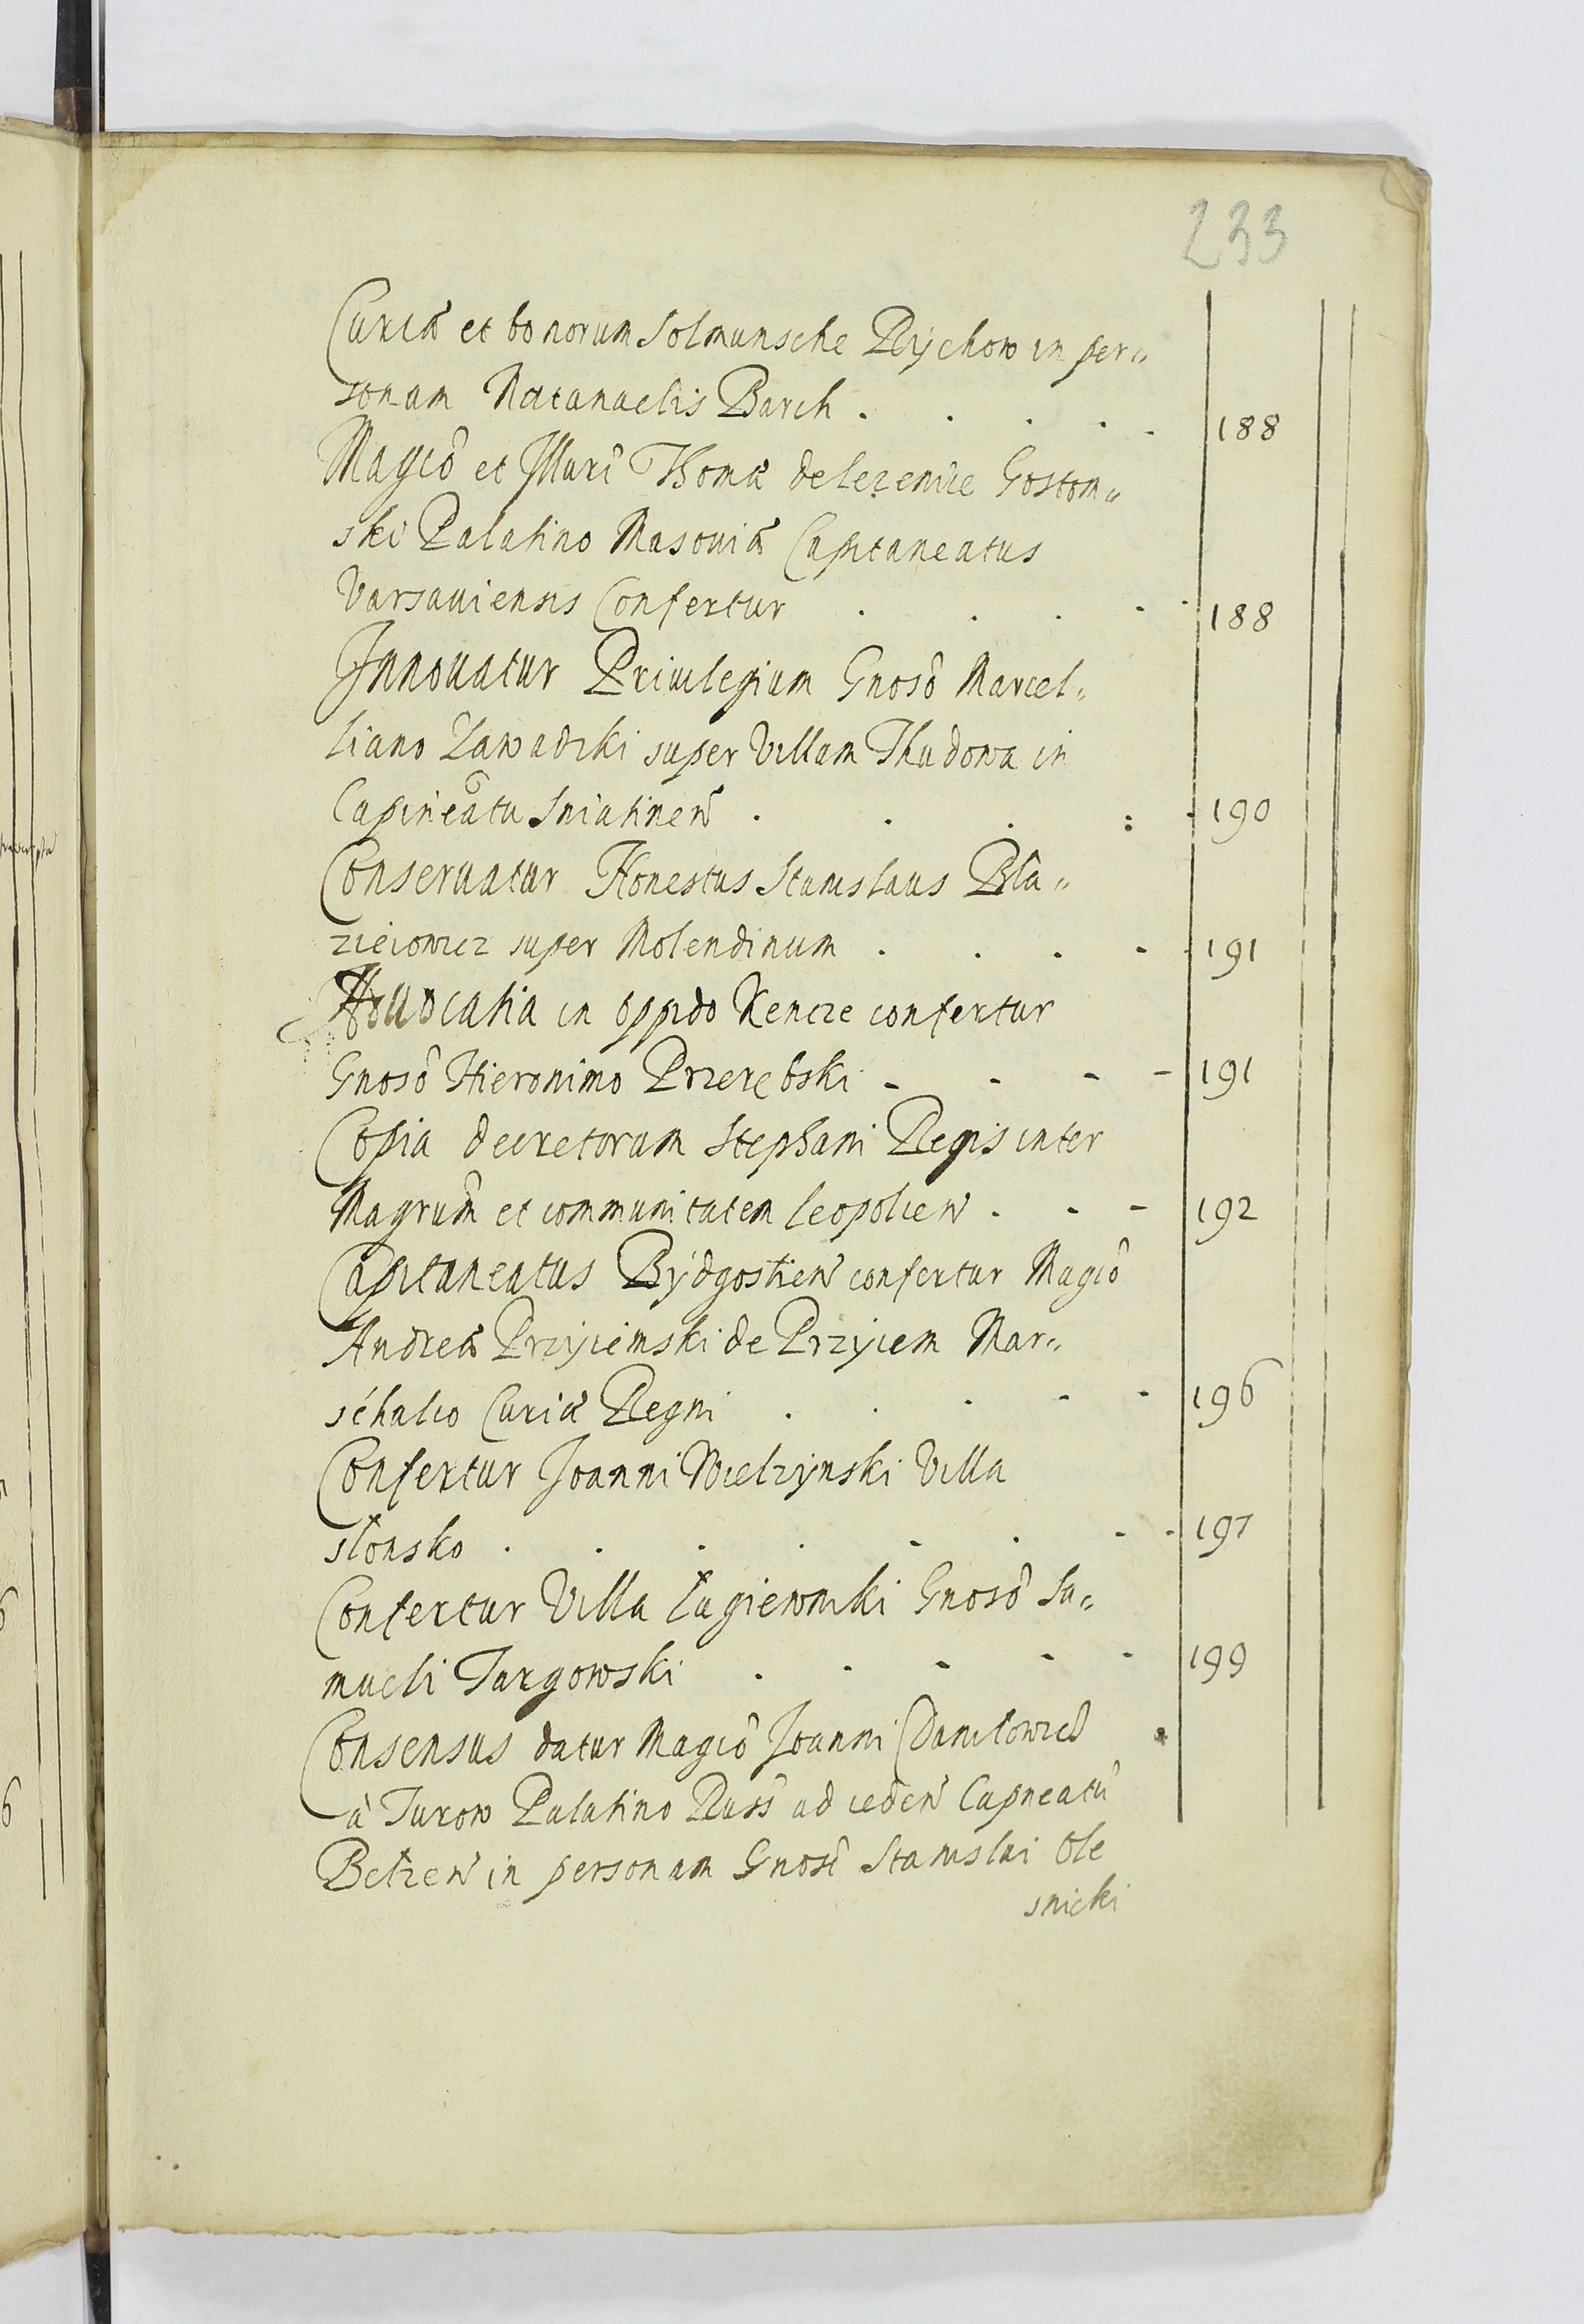 233
Curiæ et bonorum Solmunsche Rÿchow in per„
sonam Natanaelis Barch . . . . . 188
Magcô et Illuri Thomæ de Lezenice Gostom„
ski Palatino Masouiæ Capitaneatus
Varsauiensis Confertur . . . . . 188
Innouatur Priuilegium Gnosô Marcel„
liano Zawadzki super Villam Thudowa in
Capineâtu Sniatinen . . . : . 190
Conseruatur Honestus Stanislaus Bla„
zieiowicz super Molendinum . . . . . 191
Aduocatia in oppido Kencze confertur
Gnosô Hieronimo Przerębski - - - - 191
Copia decretorum Stephani Regis inter
Magrum et communitatem Leopolien . - - 192
Capitaneatus Bÿdgostien confertur Magcô
Andreæ Przÿiemski de Przÿiem Mar„
schalco Curiæ Regni . . . . . 196
Confertur Joanni Wielzÿnski Villa
słonsko . . . . . . . . 197
Confertur Villa Łagiewniki Gnosô Sa„
mueli Targowski . . . . . 199
Consensus datur Magcô Joanni Daniłowicz
à Zurow Palatino Russ ad ceden Capneatu
Belzen in personam Gnosi Stanislai Ole
snicki